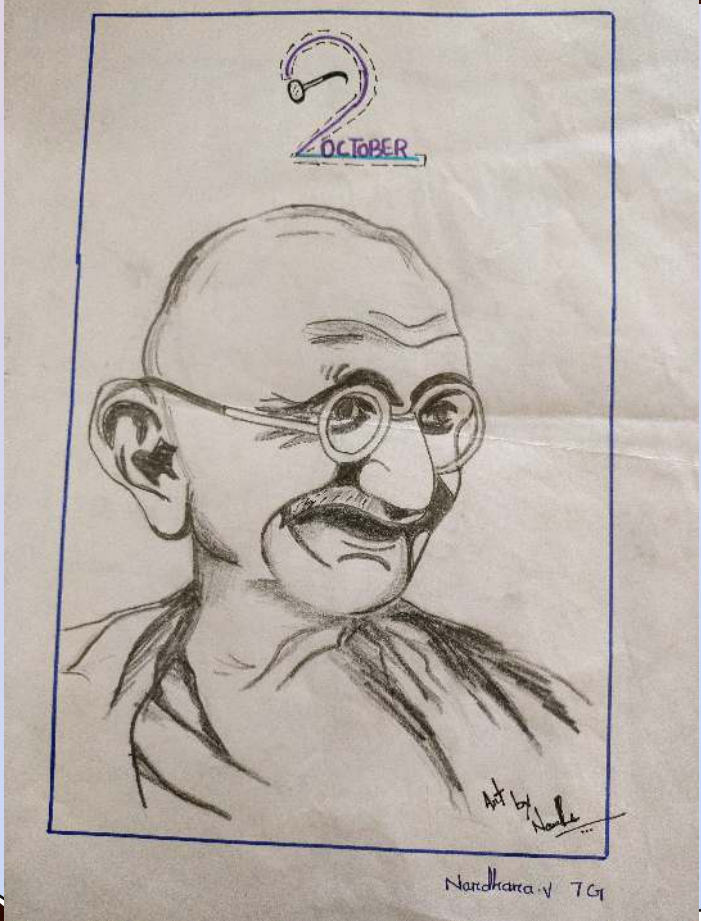 2
OCTOBER
Art by
Nandhana.V 7G